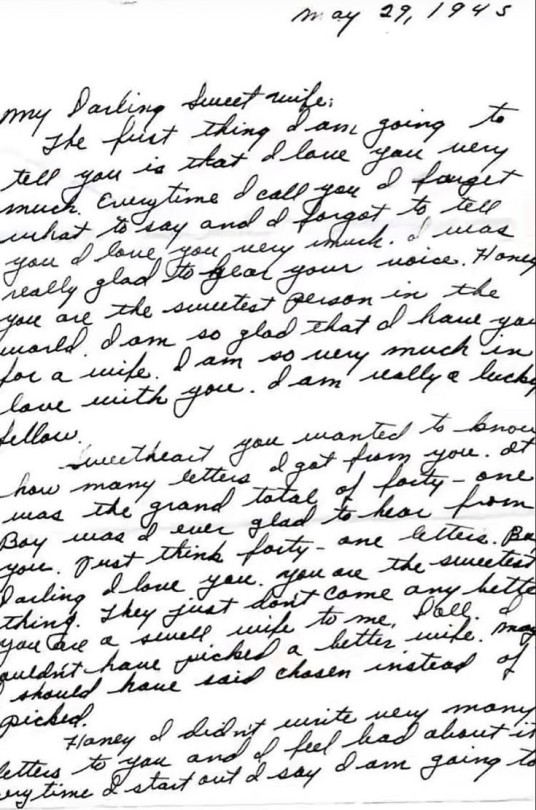 May 29, 1945
My Darling Sweet wife:
The first thing I am going to
tell you is that I love you very
much. Everytime I call you I forget
what to say and I forgot to tell
you I love you very much. I was
really glad to hear your voice. Honey
you are the sweetest person in the
world. I am so glad that I have you
for a wife. I am so very much in
love with you. I am really a lucky
fellow.
Sweetheart you wanted to know
how many letters I got from you. It
was the grand total of forty-one
Boy was I ever glad to hear from
you. Just think forty-one letters. Bo
Darling I love you. You are the sweetest
thing. They just don't come any bette
you are a swell wife to me, Doll. I
ouldn't have picked a better wife. May
I should have said chosen instead of
picked.
Honey I didn't write very many
letters to you and I feel bad about it
erytime I start out I say I am going to